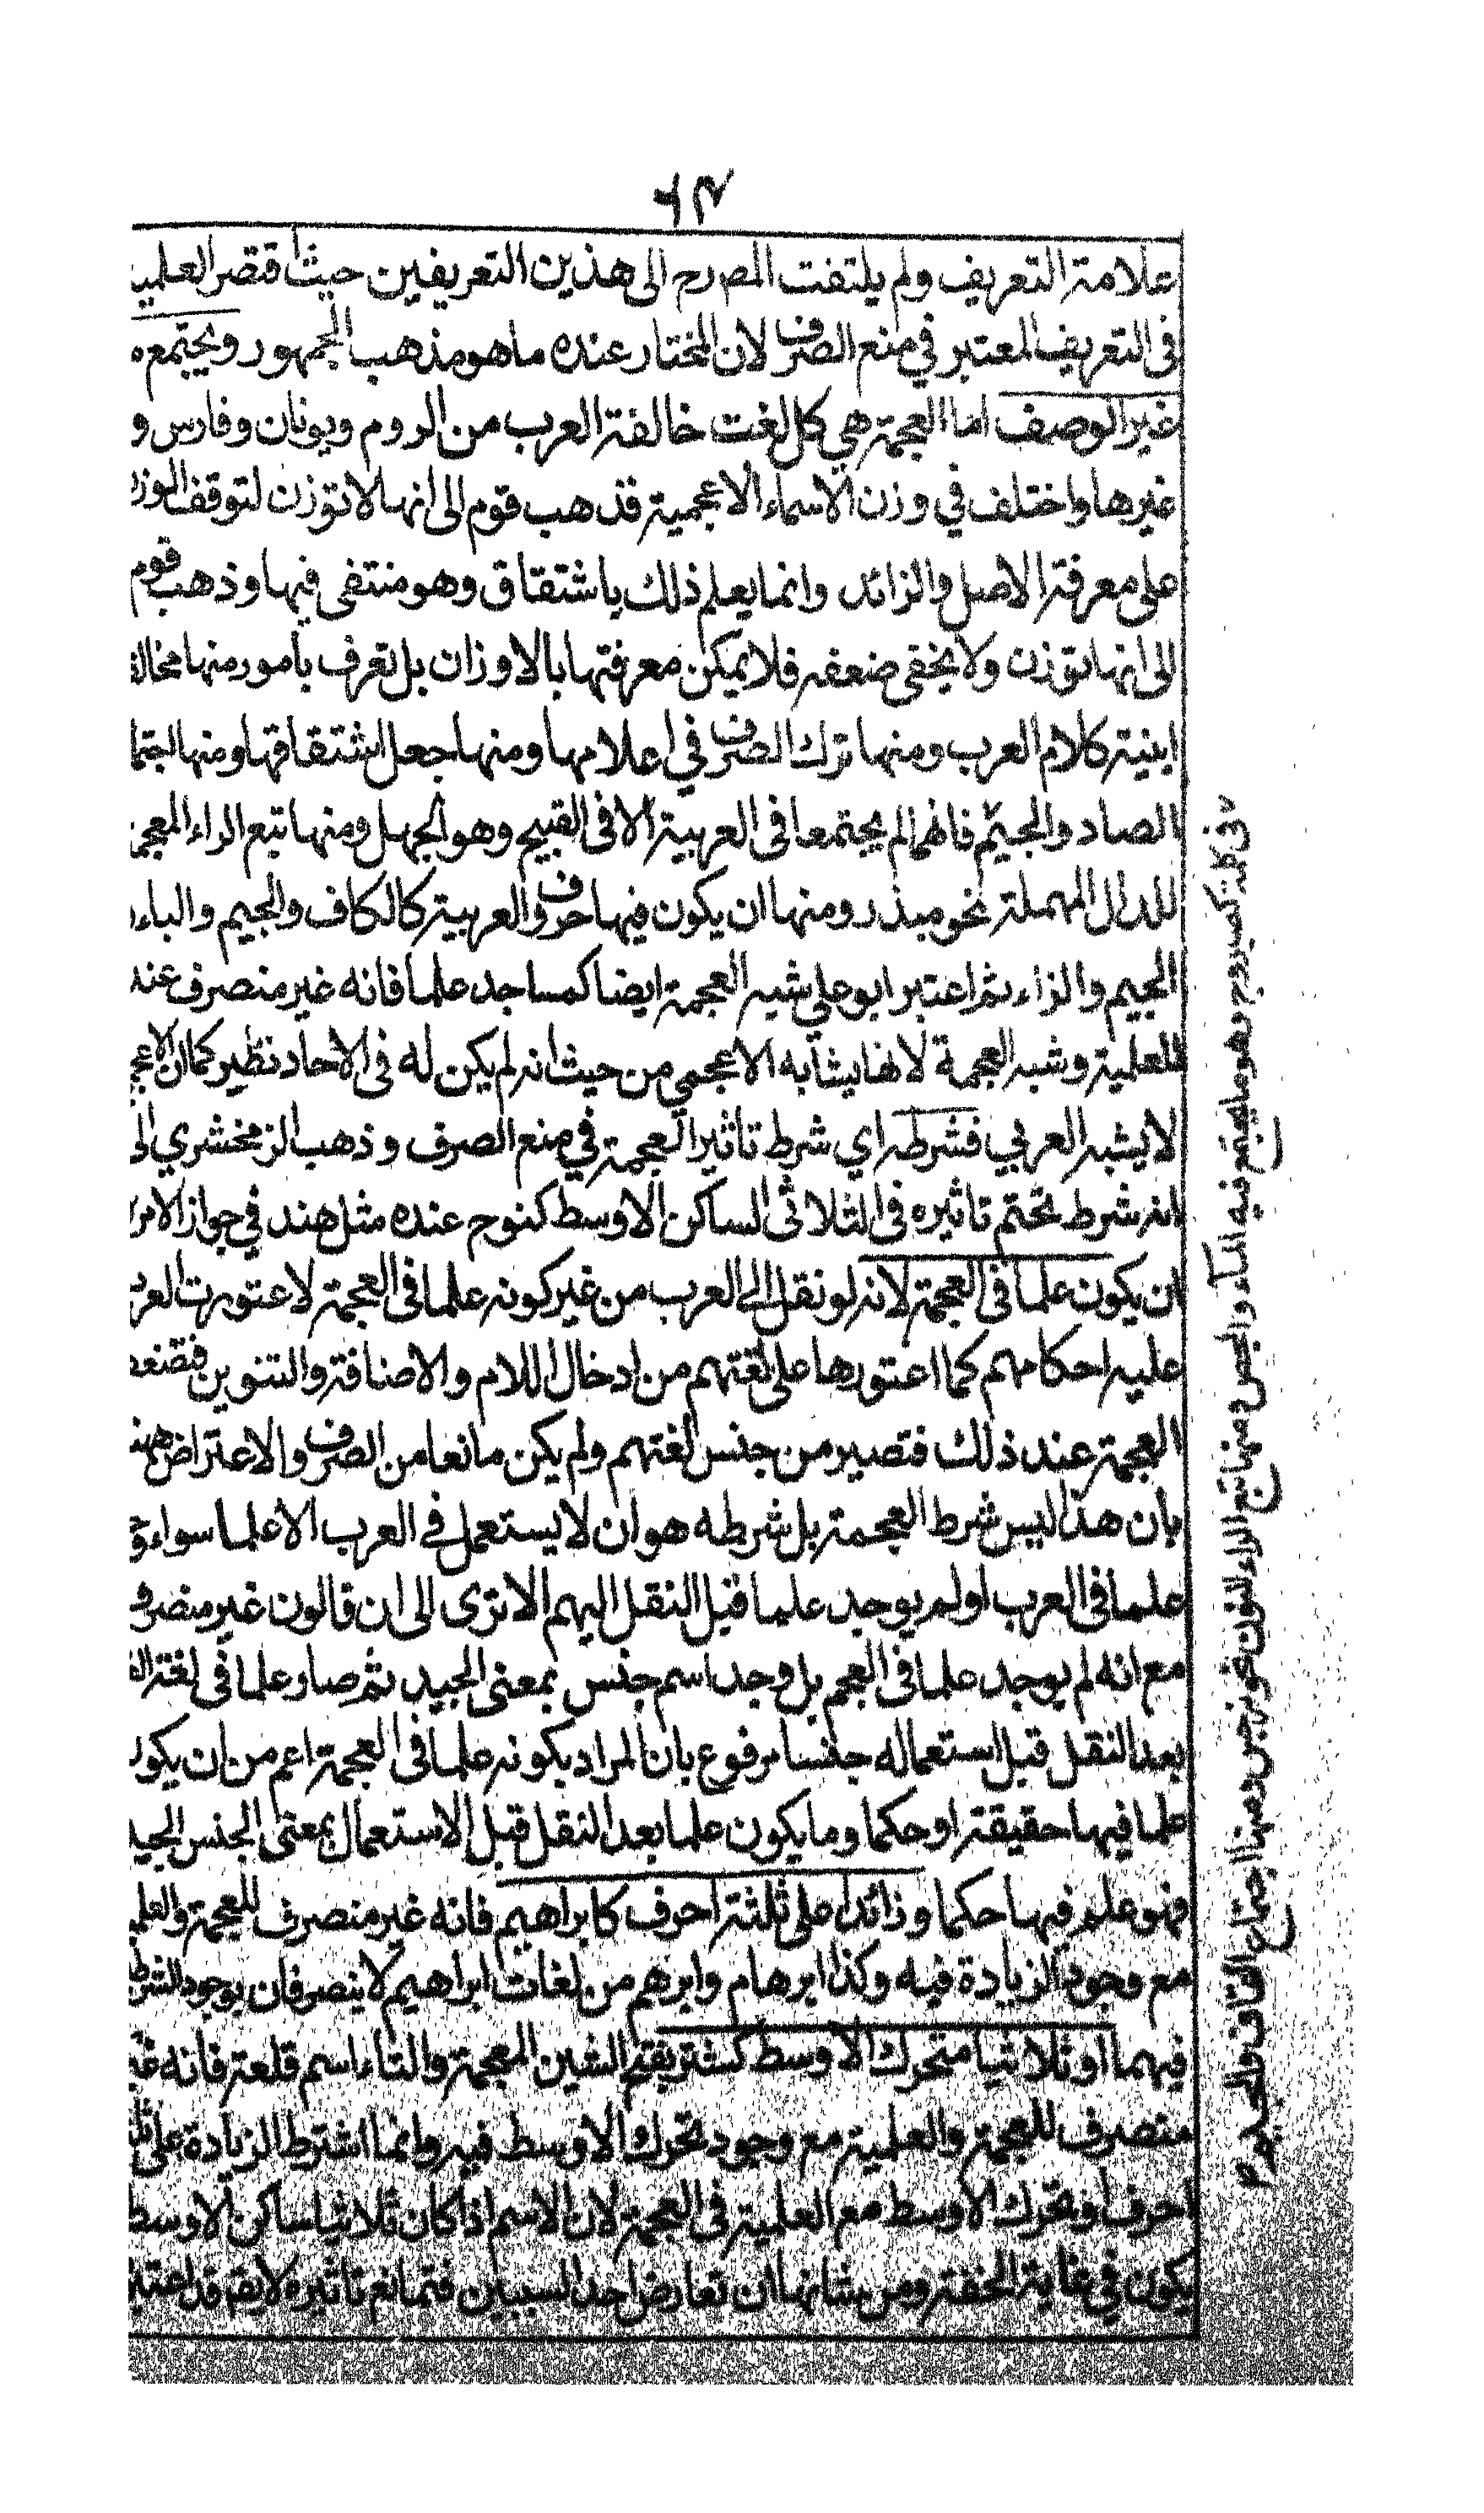 ٦٣
علامة التعريف ولم يلتفت المص رح الى هذين التعريفين حيث اقتصر العلمية
فى التعريف المعتبر في منع الصرف لان المختار عنده ما هو مذهب الجمهور ويجتمع ه
غير الوصف اما العجمة هي كل لغت خالفة العرب من الروم ويونان وفارس و
غيرها واختلف في وزن الاسماء الاعجمية فذهب قوم الى انها لا توزن لتوقف الوزن
على معرفة الاصل والزائد وانما يعلم ذلك باشتقاق وهو منتفى فيها وذهب قوم
الى انها توزن ولا يخفى ضعفه فلا يمكن معرفتها بالاوزان بل تعرف بامور منها مخالفة
ابنية كلام العرب ومنها ترك الصرف في اعلامها ومنها جعل اشتقاقها ومنها اجتماع
الصاد والجيم فانهما لم يجتمعا فى العربية الا فى القبيح وهو الجهل ومنها تبع الراء المعجمة
للدال المهملة نحو مبذر ومنها ان يكون فيها حرف والعربية كالكاف والجيم والباء و
الجيم والزاء ثم اعتبر ابو علي شبه العجمة ايضا كمساجد علما فانه غير منصرف عنده
للعلمية وشبه العجمة لانها يشابه الاعجمي من حيث انه لم يكن له فى الاحاد نظير كما ان الاعجمي
لا يشبه العربي فشرطه اي شرط تاثير العجمة في منع الصرف وذهب الزمخشري الى
انه شرط تحتم تاثيره فى الثلاثى الساكن الاوسط كنوح عنده مثل هند في جواز الامرين
ان يكون علما فى العجمة لانه لو نقل الى العرب من غير كونه علما فى العجمة لاعتورت العرب
عليه احكامهم كما اعتورها على لغتهم من ادخال اللام والاضافة والتنوين فتضعف
العجمة عند ذلك فتصير من جنس لغتهم ولم يكن مانعا من الصرف والاعتراض ههنا
بان هذا ليس شرط العجمة بل شرطه هو ان لا يستعمل في العرب الا علما سواء وجد
علما فى العرب اولم يوجد علما قبل النقل اليهم الا ترى الى ان قالون غير منصرف
مع انه لم يوجد علما فى العجم بل وجد اسم جنس بمعنى الجيد ثم صار علما فى لغة العرب
بعد النقل قبل استعماله جنسا مرفوع بان المراد بكونه علما فى العجمة اعم من ان يكون
علما فيها حقيقة او حكما وما يكون علما بعد النقل قبل الاستعمال بمعنى الجنس الجيد
فهو علم فيها حكما وزائدا على ثلثة احرف كابراهيم فانه غير منصرف للعجمة والعلمية
مع وجود الزيادة فيه وكذا ابرهام وابرهم من لغات ابراهيم لا ينصرفان بوجود الشرط
فيهما او ثلاثيا متحرك الاوسط كشتر بفتح الشين المعجمة والتاء اسم قلعة فانه غير
منصرف للعجمة والعلمية مع وجود تحرك الاوسط فيه وانما اشترط الزيادة على ثلثة
احرف او تحرك الاوسط مع العلمية فى العجمة لان الاسم اذا كان ثلاثيا ساكن الاوسط
يكون في غاية الخفة ومن شانها ان تعارض احد السببين فتمانع تاثيره لا يق قد اعتبر
وهو ما يجتمع فيه
والجص ومنها تبع الراء للنون نحو نرجس ومنها اجتماع القاف والجيم